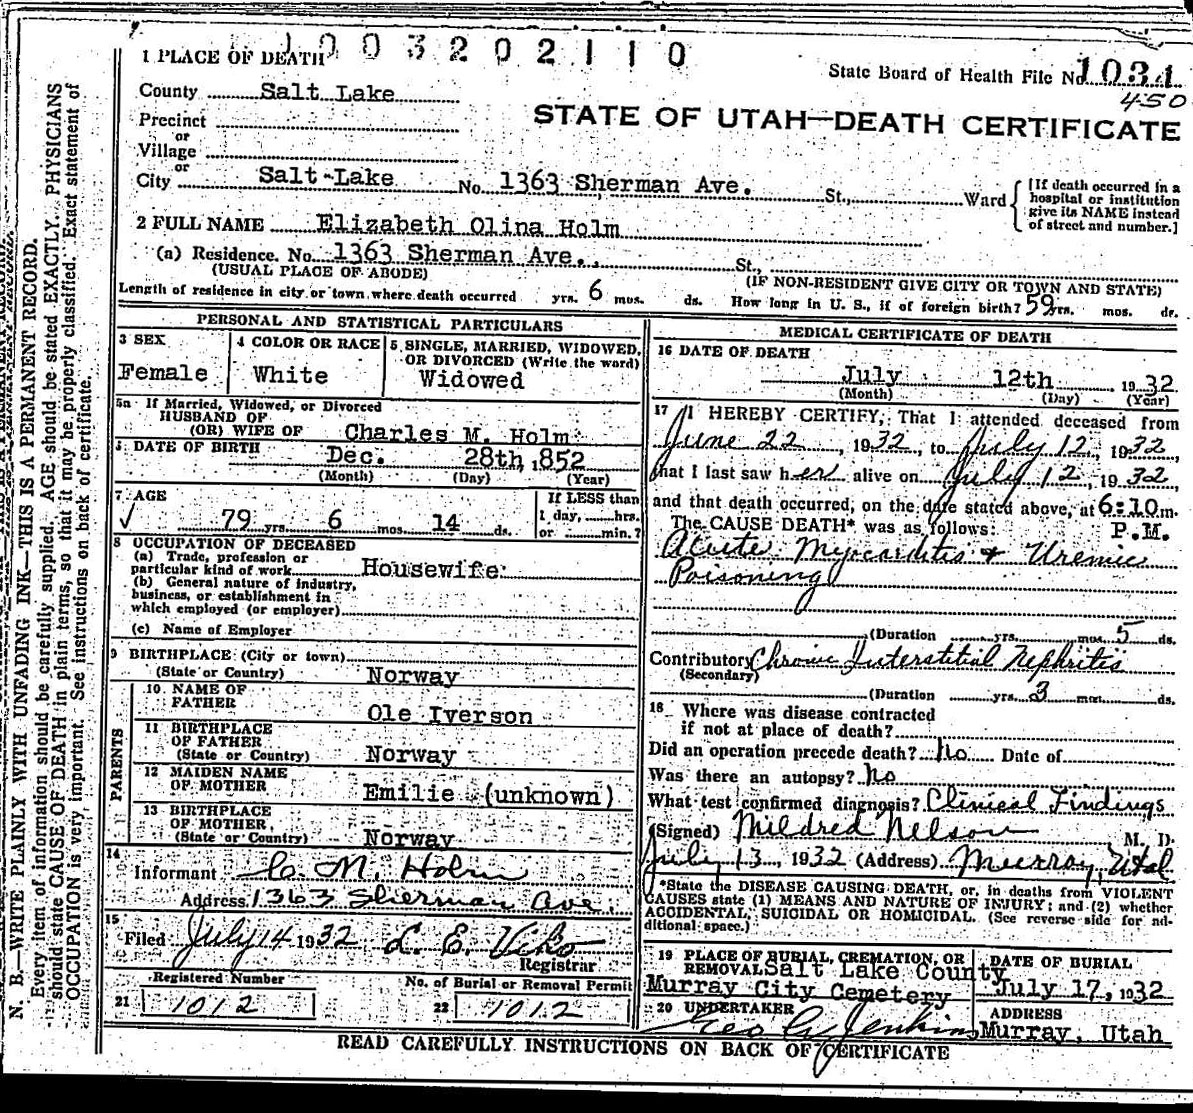 1003202110
1 PLACE OF DEATH
State Board of Health File No. 1034
450
County Salt Lake
STATE OF UTAH—DEATH CERTIFICATE
Precinct
or
Village
or
City Salt Lake No. 1363 Sherman Ave. St., Ward
[If death occurred in a
hospital or institution
give its NAME instead
of street and number.]
2 FULL NAME Elizabeth Olina Holm
(a) Residence. No. 1363 Sherman Ave., St.,
(USUAL PLACE OF ABODE) (IF NON-RESIDENT GIVE CITY OR TOWN AND STATE)
Length of residence in city or town where death occurred yrs. 6 mos. ds. How long in U. S., if of foreign birth? 59 yrs. mos. ds.
PERSONAL AND STATISTICAL PARTICULARS
3 SEX
Female
4 COLOR OR RACE
White
5 SINGLE, MARRIED, WIDOWED,
OR DIVORCED (Write the word)
Widowed
5a If Married, Widowed, or Divorced
HUSBAND OF
(OR) WIFE OF Charles M. Holm
DATE OF BIRTH Dec. 28th, 1852
(Month) (Day) (Year)
7 AGE
79 yrs. 6 mos. 14 ds.
If LESS than
1 day, hrs.
or min.?
8 OCCUPATION OF DECEASED
(a) Trade, profession or
particular kind of work Housewife
(b) General nature of industry,
business, or establishment in
which employed (or employer)
(c) Name of Employer
9 BIRTHPLACE (City or town)
(State or Country) Norway
PARENTS
10 NAME OF
FATHER Ole Iverson
11 BIRTHPLACE
OF FATHER
(State or Country) Norway
12 MAIDEN NAME
OF MOTHER Emilie (unknown)
13 BIRTHPLACE
OF MOTHER
(State or Country) Norway
14
Informant C. M. Holm
Address 1363 Sherman Ave.
15
Filed July 14 1932 L. E. Viko
Registrar
Registered Number
21 1012
No. of Burial or Removal Permit
22 1012
MEDICAL CERTIFICATE OF DEATH
16 DATE OF DEATH
July 12th 1932
(Month) (Day) (Year)
17 I HEREBY CERTIFY, That I attended deceased from
June 22, 1932, to July 12, 1932,
that I last saw her alive on July 12, 1932,
and that death occurred, on the date stated above, at 6:10 m.
P.M.
The CAUSE DEATH* was as follows:
Acute Myocarditis & Uremic
Poisoning
(Duration yrs. mos. 5 ds.
Contributory Chronic Interstitial Nephritis
(Secondary)
(Duration yrs. 3 mos. ds.
18 Where was disease contracted
if not at place of death?
Did an operation precede death? No Date of
Was there an autopsy? No
What test confirmed diagnosis? Clinical Findings
(Signed) Mildred Nelson M. D.
July 13, 1932 (Address) Murray, Utah
*State the DISEASE CAUSING DEATH, or, in deaths from VIOLENT
CAUSES state (1) MEANS AND NATURE OF INJURY; and (2) whether
ACCIDENTAL, SUICIDAL OR HOMICIDAL. (See reverse side for ad-
ditional space.)
19 PLACE OF BURIAL, CREMATION, OR
REMOVAL Salt Lake County
Murray City Cemetery
DATE OF BURIAL
July 17, 1932
20 UNDERTAKER
Geo A Jenkins
ADDRESS
Murray, Utah
READ CAREFULLY INSTRUCTIONS ON BACK OF CERTIFICATE
N. B.—WRITE PLAINLY WITH UNFADING INK—THIS IS A PERMANENT RECORD.
Every item of information should be carefully supplied. AGE should be stated EXACTLY. PHYSICIANS
should state CAUSE OF DEATH in plain terms, so that it may be properly classified. Exact statement of
OCCUPATION is very important. See instructions on back of certificate.